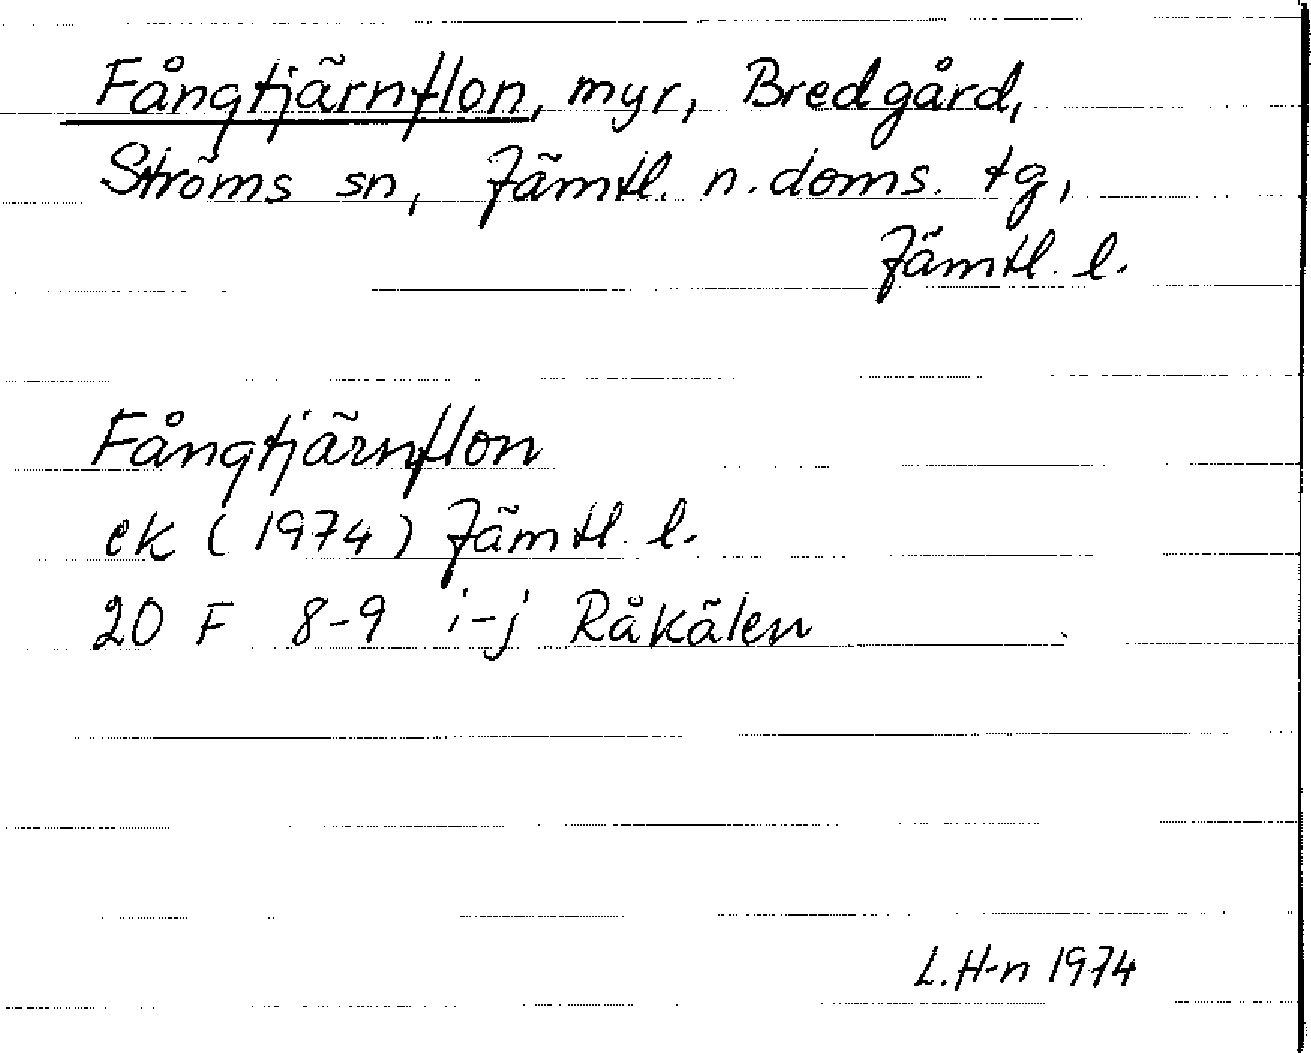 Fångtjärnflon, myr, Bredgård,
Ströms sn, Jämtl. n. doms. tg,
Jämtl. l.
Fångtjärnflon
ek (1974) Jämtl. l.
20 F 8-9 i-j Råkälen
L. H-n 1974